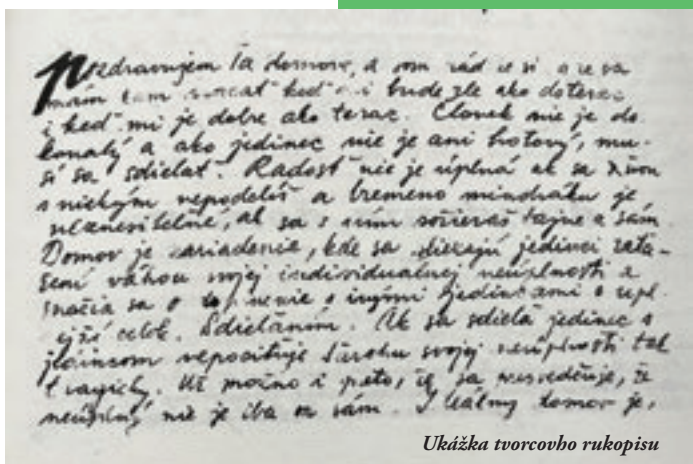 Pozdravujem Ťa domove, a som rád že si a že sa
mám kam vracať keď mi bude zle ako doteraz
i keď mi je dobre ako teraz. Človek nie je do-
konalý a ako jedinec nie je ani hotový, mu-
sí sa sdielať. Radosť nie je úplná ak sa s ňou
s niekým nepodelíš a bremeno mindráku je
neznesiteľné, ak sa s ním sožieraš tajne a sám
Domov je zariadenie, kde sa jedinci zaťa-
žení váhou svojej individuálnej neúplnosti a
snažia sa o doplnenie s inými jedincami o úpl-
nejší celok. Sdieľaním. Ak sa sdiela jedinec s
jedincom nepociťuje ťarchu svojej neúplnosti tak
tragicky. Už možno i preto, že sa presvedčuje, že
neúplný nie je iba on sám. Ideálny domov je,
Ukážka tvorcovho rukopisu